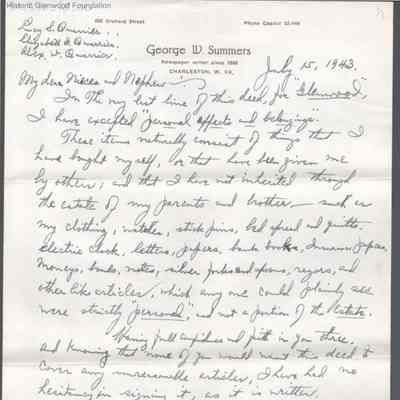 Historic Glenwood Foundation
Lucy S. Quarrier
Elizabeth S. Quarrier
Alex. W. Quarrier
Orchard Street
Phone Capitol
George W. Summers
Newspaper writer since 1888
CHARLESTON, W. VA.
July 15, 1943.
My dear Nieces and Nephew:
In the very last line of this deed, for "Glenwood",
I have excepted "personal effects and belongings."
These items naturally consist of things that I
have bought myself, or that have been given me
by others, and that I have not inherited through
the estate of my parents and brother — such as
my clothing, watches, stick pins, bed spread and quilts,
electric clock, letters, papers, bank books, Insurance papers,
moneys, bonds, notes, silver forks and spoons, razors, and
other like articles, which any one could plainly see
were strictly "personal," and not a portion of the Estate.
Having full confidence and faith in you three,
and knowing that none of you would want this deed to
cover any unreasonable articles, I have had no
hesitancy in signing it, as it is written.